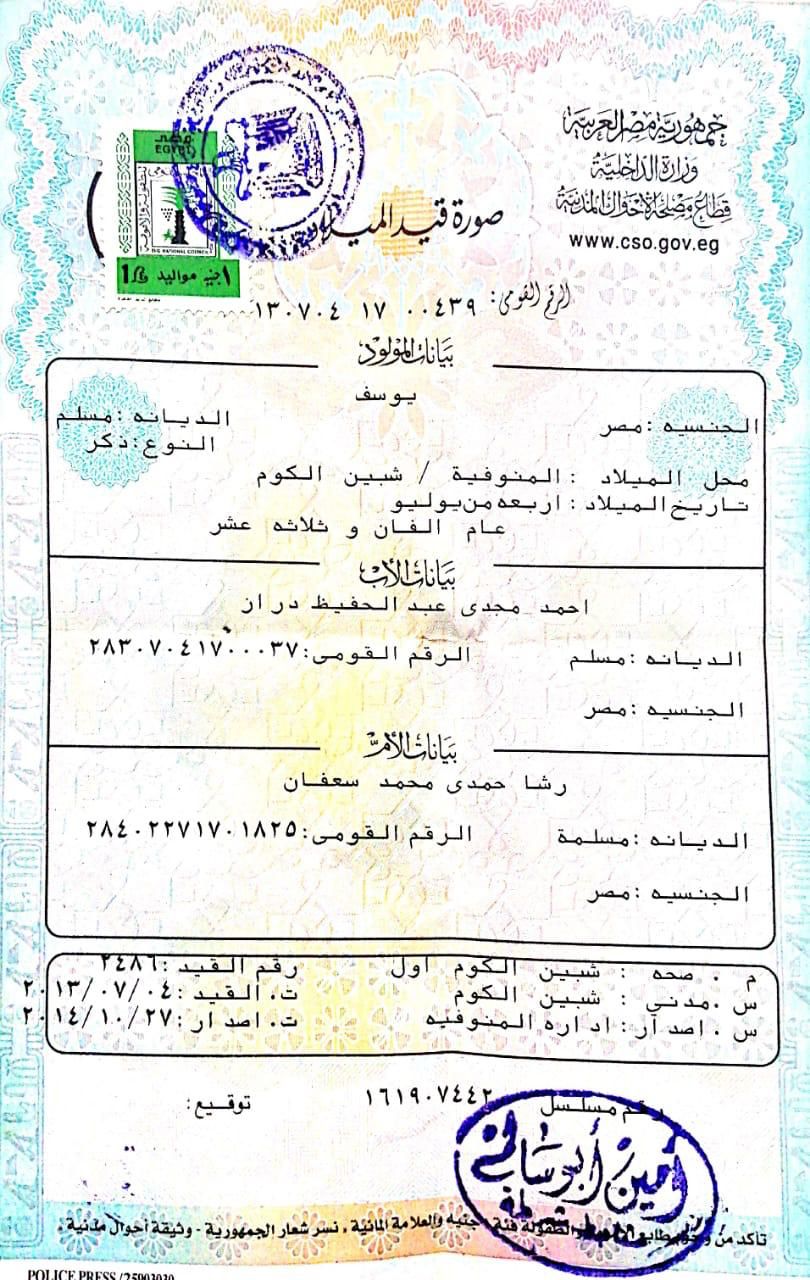 جمهورية مصر العربية
وزارة الداخلية
قطاع مصلحة الأحوال المدنية
www.cso.gov.eg
مصر
EGYPT
١ جنيه مواليد
صورة قيد الميلاد
الرقم القومى: ١٣٠٧٠٤ ١٧ ٠٠٤٣٩
بيانات المولود
يوسف
الجنسيه :مصر الديانه :مسلم
النوع:ذكر
محل الميلاد : المنوفية / شبين الكوم
تاريخ الميلاد : اربعه من يوليو
عام الفان و ثلاثه عشر
بيانات الأب
احمد مجدى عبد الحفيظ دراز
الديانه :مسلم الرقم القومى:٢٨٣٠٧٠٤١٧٠٠٠٣٧
الجنسيه :مصر
بيانات الأم
رشا حمدى محمد سعفان
الديانه :مسلمة الرقم القومى:٢٨٤٠٢٢٧١٧٠١٨٢٥
الجنسيه :مصر
م . صحه : شبين الكوم اول رقم القيد :٢٤٨٦
س .مدني : شبين الكوم ت. القيد :٢٠١٣/٠٧/٠٤
س . اصدار : اداره المنوفيه ت. اصدار :٢٠١٤/١٠/٢٧
رقم مسلسل ١٦١٩٠٧٤٤٢ توقيع:
أمين أبو سالم
تأكد من وجود طابع الأمومة والطفولة فئة جنيه والعلامة المائية . نسر شعار الجمهورية - وثيقة أحوال مدنية .
POLICE PRESS /25003030